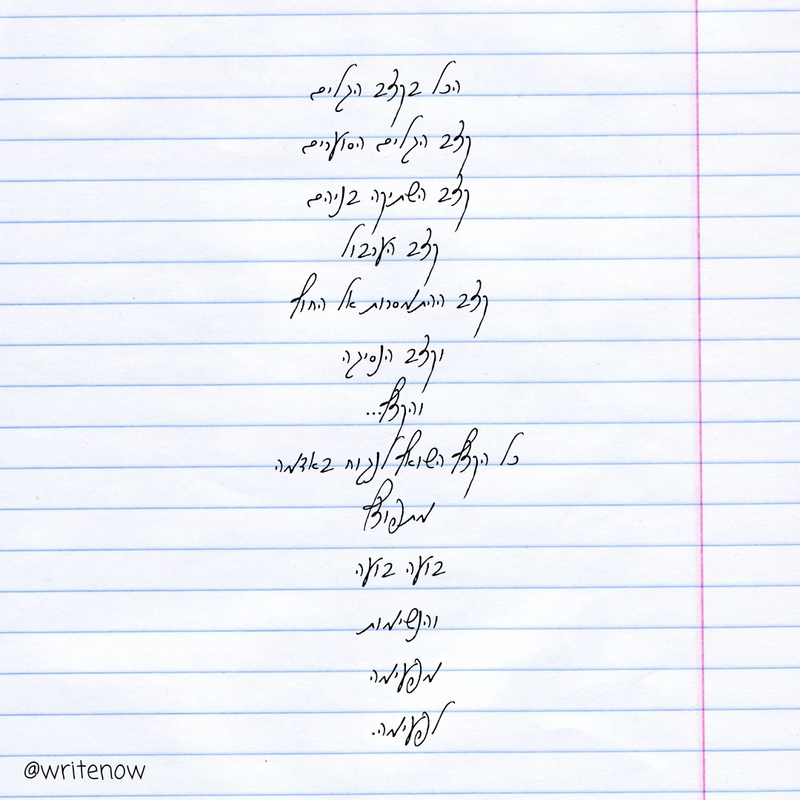 הכל בקצב הגלים
קצב הגלים הסוערים
קצב השתיקה בניהם
קצב הערבול
קצב ההתמסרות אל החוף
וקצב הנסיגה
והקצף...
כל הקצף השואף לנגוח באדמה
מתפוצץ
בועה בועה
והנשימות
מפעימה
לפעימה.
@writenow